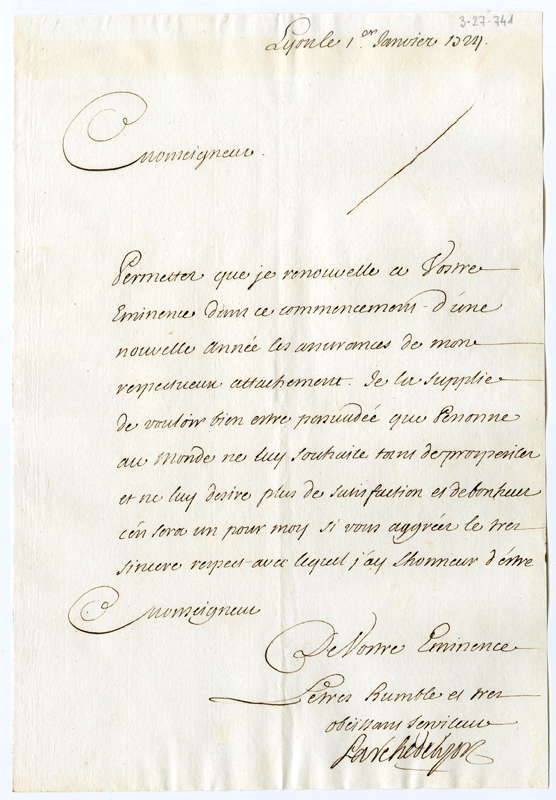 3-27-741
Lyon le 1.er Janvier 1724.
Monseigneur.
Permettez que je renouvelle a Vostre
Eminence dans ce commencement d'une
nouvelle Année les assurances de mon
respectueux attachement. Je la supplie
de vouloir bien estre persuadée que Personne
au Monde ne luy souhaite tant de prosperitez
et ne luy desire plus de satisfaction et de bonheur
c'en sera un pour moy si vous aggréez le tres
sincere respect avec lequel j'ay L'honneur d'éstre
Monseigneur
De Vostre Eminence
Le tres humble et tres
obeissant serviteur